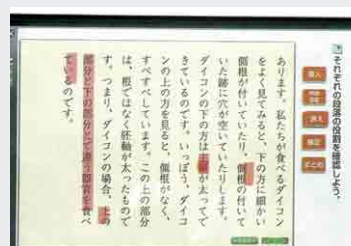 それぞれの段落の役割を確認しよう。
まとめ
あります。私たちが食べるダイコン
をよく見てみると、下の方に細かい
側根が付いていたり、側根の付いて
いた跡に穴が空いていたりします。
ダイコンの下の方は主根が太ってで
きているのです。いっぽう、ダイコ
ンの上の方を見ると、側根がなく、
すべすべしています。この上の部分
は、根ではなく胚軸が太ったもので
す。つまり、ダイコンの場合、上の
部分と下の部分とで違う器官を食べ
ているのです。